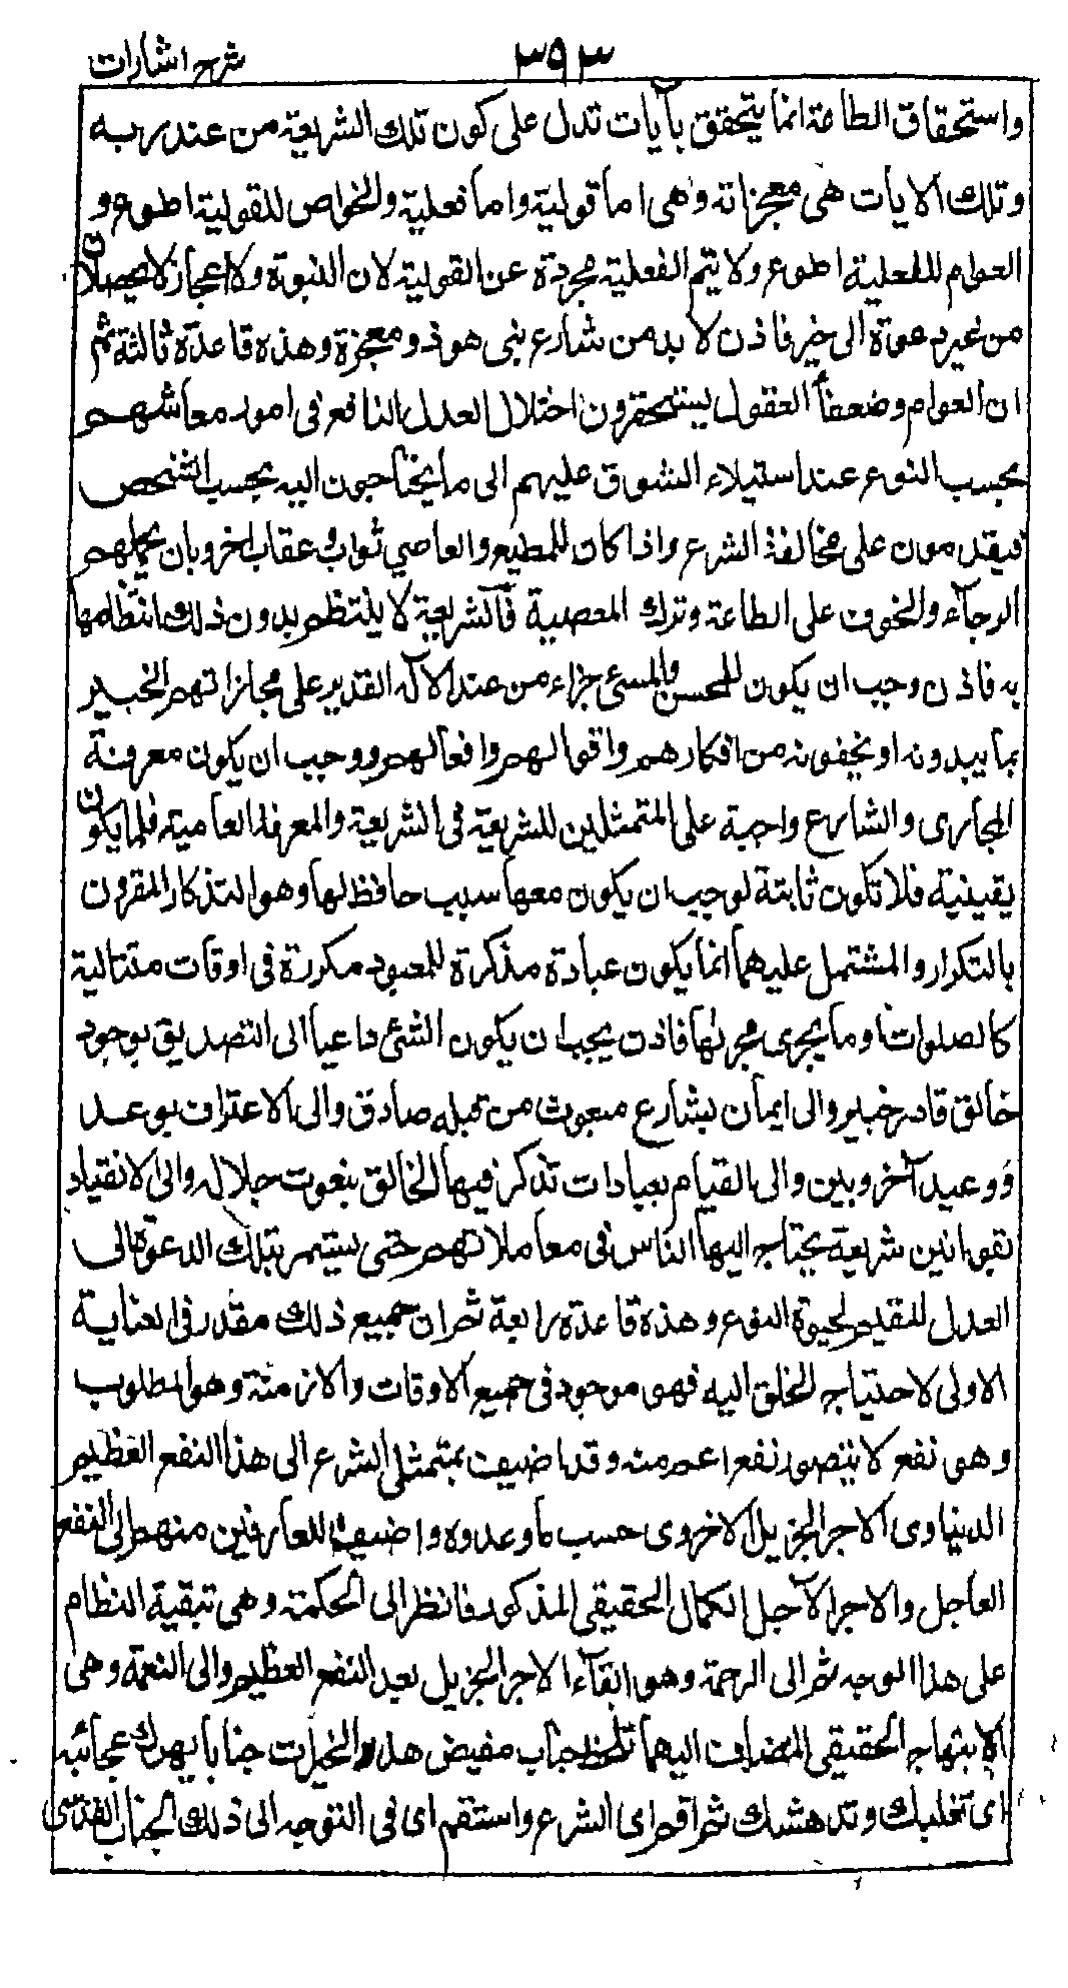 شرح اشارات
٣٩٣
واستحقاق الطاعة انما يتحقق بآيات تدل على كون تلك الشريعة من عند ربه
وتلك الايات هى معجزاته وهى اما قولية واما فعلية والخواص للقولية اطوع و
العوام للفعلية اطوع ولا يتم الفعلية مجردة عن القولية لان النبوة ولاعجاز لا يحصلان
من غير دعوة الى خير فاذن لا بد من شارع نبى هو ذو معجزة وهذه قاعدة ثالثة ثم
ان العوام وضعفأ العقول يستحقرون اختلال العدل النافع فى امور معاشهم
بحسب النوع عند استيلاء الشوق عليهم الى ما يحتاجون اليه بحسب الشخص
فيقدمون على مخالفة الشرع واذا كان للمطيع والعاصي ثواب وعقاب اخرويان يحملهم
الرجآء والخوف على الطاعة وترك المعصية فآلشريعة لا ينتظم بدون ذلك انتظامها
به فاذن وجب ان يكون للمحسن والمسئ جزاء من عند الآله القدير على مجازاتهم الخبير
بما يبدونه او يخفونه من افكارهم واقوالهم وافعالهم ووجب ان يكون معرفة
المجازى والشارع واجبة على المتمثلين للشريعة فى الشريعة والمعرفة العامية فلما يكون
يقينية فلا تكون ثابتة لوجب ان يكون معها سبب حافظ لها وهو التذكار المقرون
بالتكرار والمشتمل عليهما انما يكون عبادة مذكرة للمعبود مكررة فى اوقات متتالية
كالصلوات وما يجرى مجراها فاذن يجب ان يكون الشئ داعيا الى التصديق بوجود
خالق قادر خبير والى ايمان بشارع مبعوث من قبله صادق والى الاعتراف بوعد
ووعيد آخرويين والى القيام بعبادات تذكر فيها الخالق بنعوت جلاله والى الانقياد
لقوانين شريعة يحتاج اليها الناس فى معاملاتهم حتى يستمر بتلك الدعوة الى
العدل المقيم لحيوة النوع وهذه قاعدة رابعة ثم ان جميع ذلك مقدر فى العناية
الاولى لاحتياج الخلق اليه فهو موجود فى جميع الاوقات والازمنة وهو المطلوب
وهو نفع لا يتصور نفع اعم منه وقد اضيف بمتمثلى الشرع الى هذا النفع العظيم
الدنياوى الاجر الجزيل الاخروى حسب ما وعدوه واضيف للعارفين منهم الى النفع
العاجل والاجر الآجل الكمال الحقيقى المذكور فانظر الى الحكمة وهى تبقية النظام
على هذا الوجه ثم الى الرحمة وهو ابقآء الاجر الجزيل بعد النفع العظيم والى النعمة وهى
الابتهاج الحقيقى المضاف اليهما تلحظ جناب مفيض هذه الخيرات جنابا يبهرك عجائبه
اى تغلبك وتدهشك ثم اقم اى الشرع واستقم اى فى التوجه الى ذلك الجناب القدسى